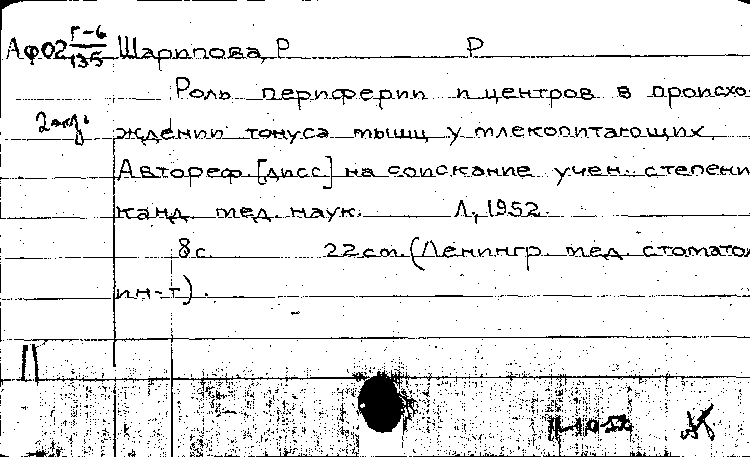 Аф02 Г-6/135 Шарипова, Р Р
Роль периферии и центров в происхо
2 экз. ждении тонуса мышц у млекопитающих.
Автореф. [дисс] на соискание учен. степени
канд. мед. наук. Л, 1952.
8 с. 22 см. (Ленингр. мед. стоматол
ин-т).
П
11-10-52